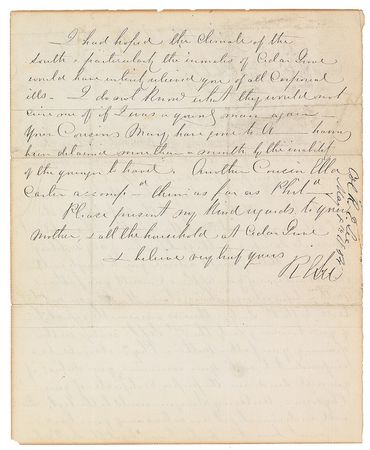 I had hoped the climate of the
South & particularly the inmates of Cedar Grove
would have entirely relieved you of all Corporeal
ills. I do not know what they would not
cure me of if I was a young man again
Your Cousins Mary have gone to A—— having
been detained more than a month by the
of the younger to travel. Another Cousin Ella
Carter accomp-d them as far as Phil-a
Please present my kind regards to your
Mother, & all the household at Cedar Grove
& believe me very truly yours
R E Lee
Col R. E. Lee